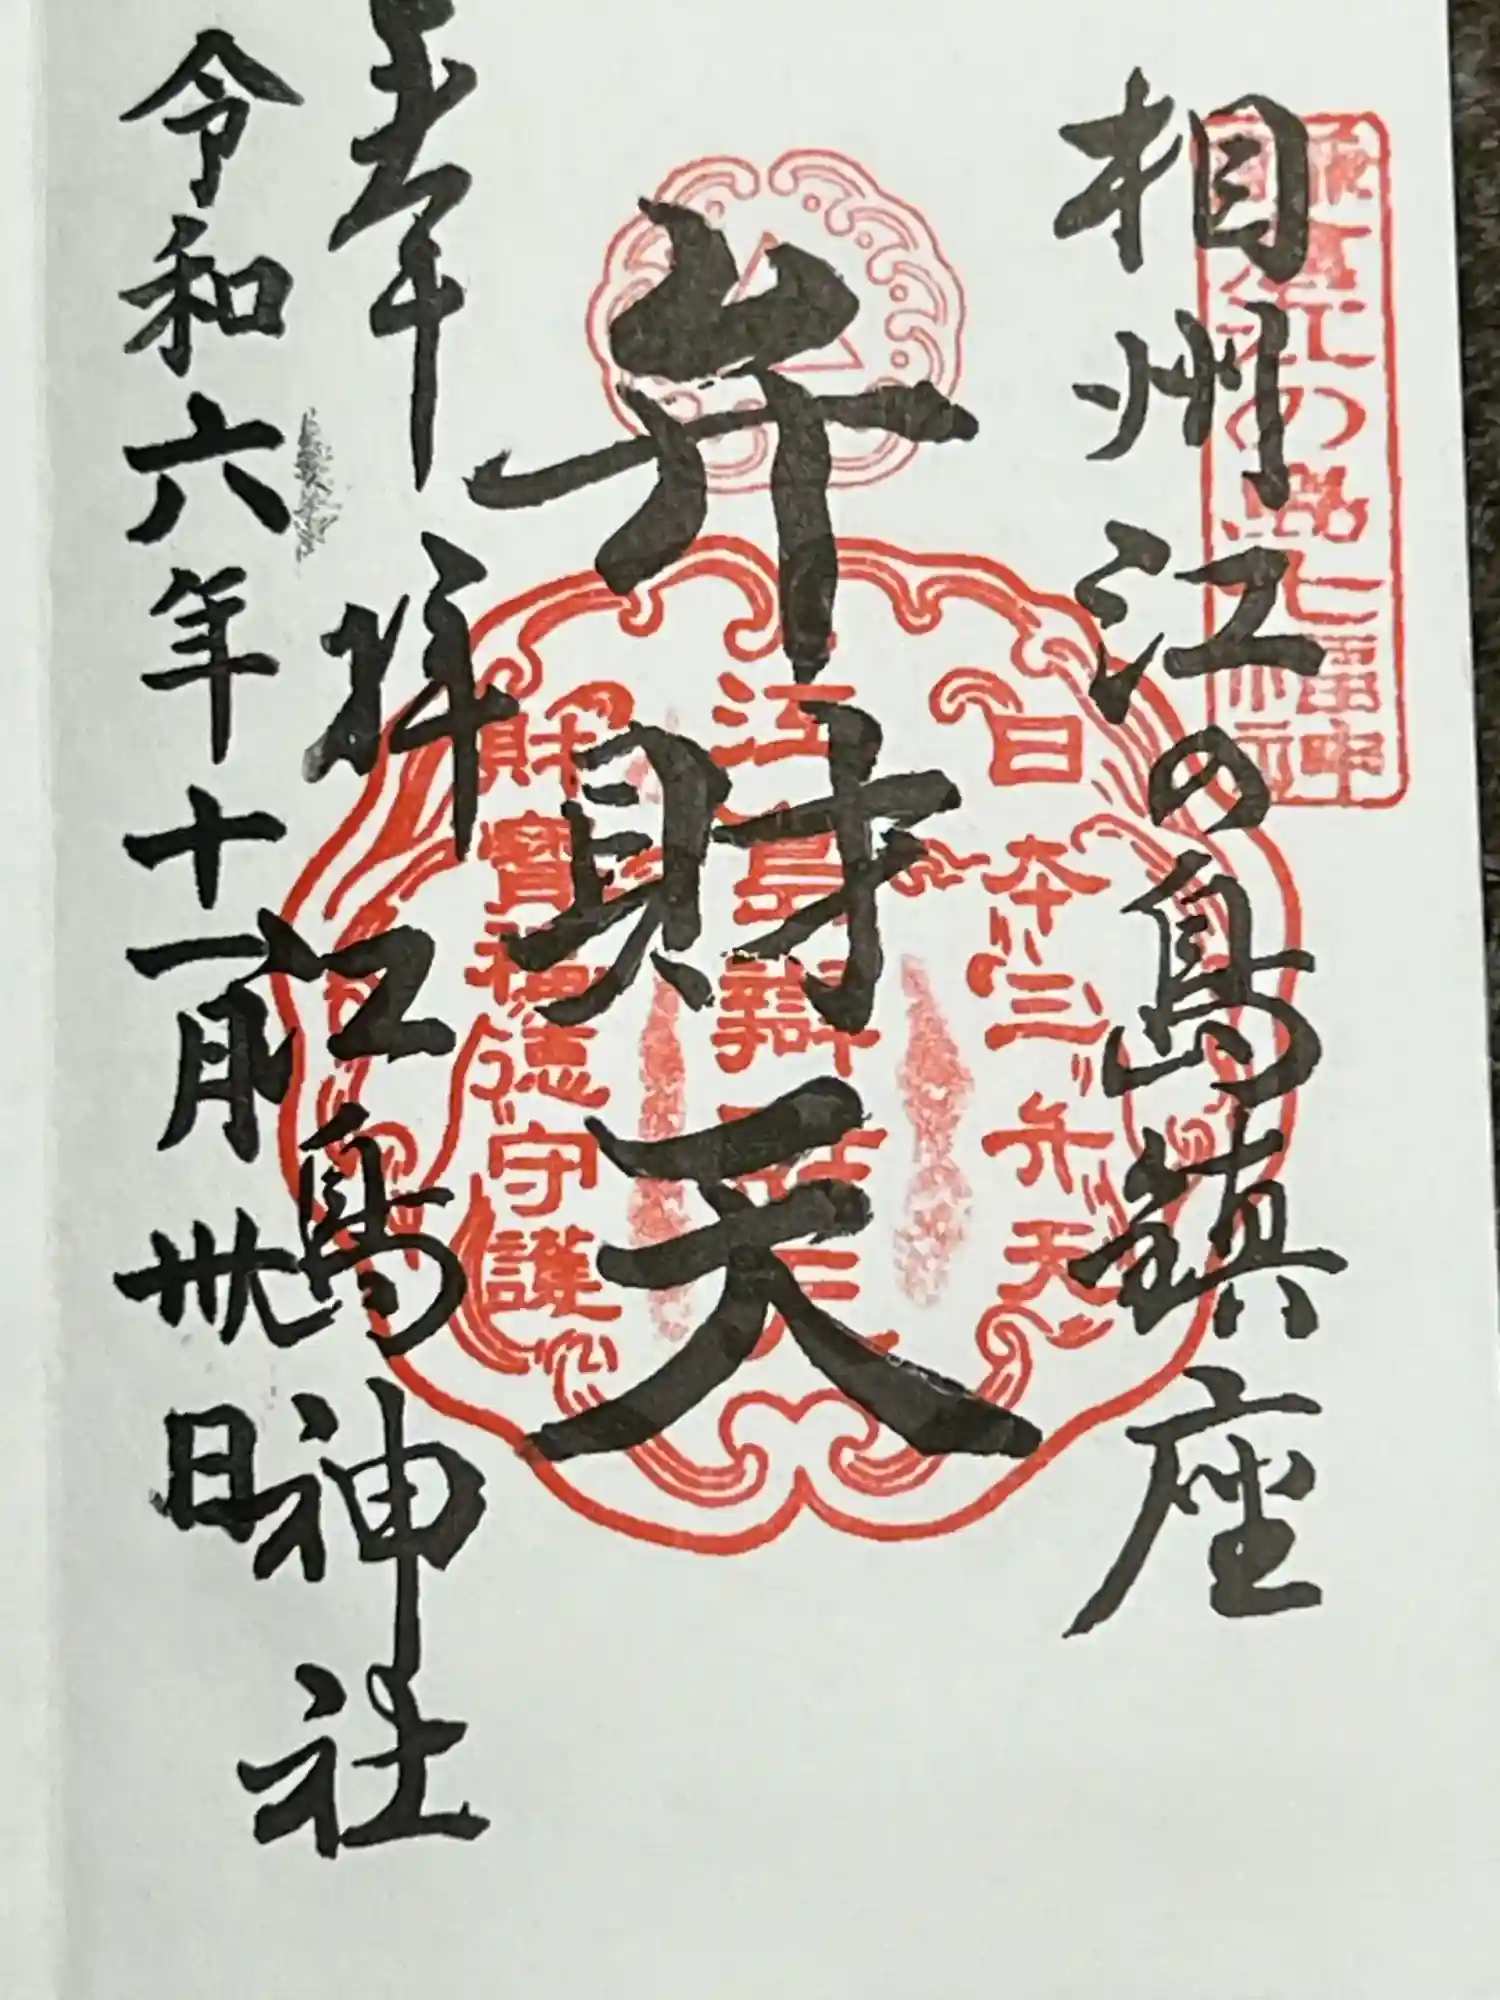 相州江の島鎮座
弁財天
奉拝
江島神社
令和六年十一月卅日
江の島七福神
日本三弁天
財寶福徳守護